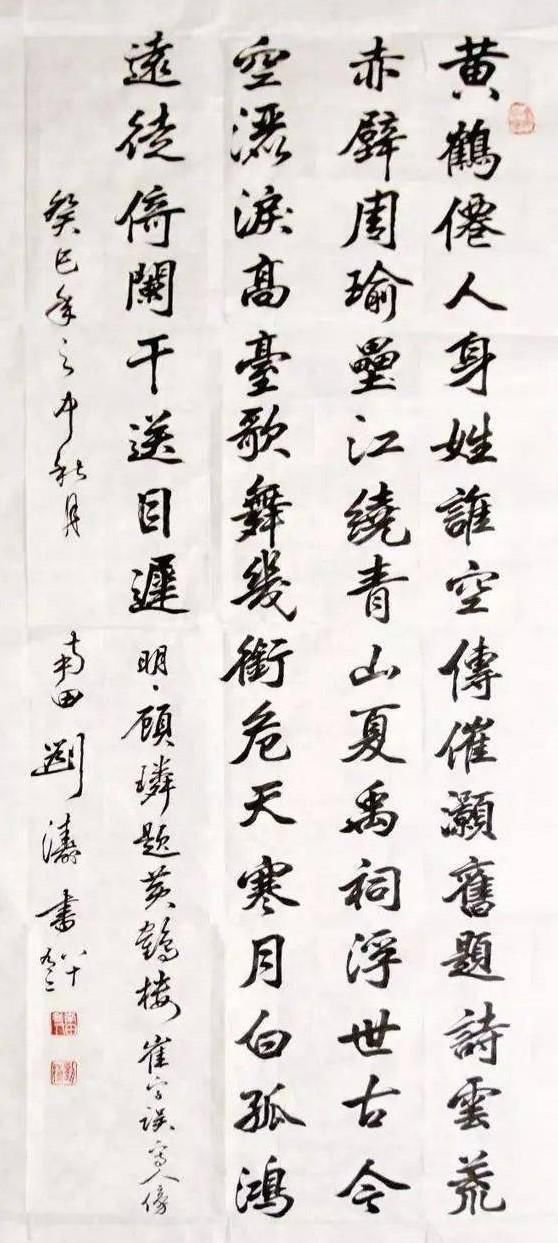 黄鶴僊人身姓誰空傳催灝舊題詩雲荒
赤壁周瑜壘江繞青山夏禹祠浮世古今
空灑淚高臺歌舞幾銜危天寒月白孤鴻
遠徒倚闌干送目遲
明·顧璘題黄鶴楼 崔字误写人傍
癸巳年之中秋月
南田劉濤書
八十